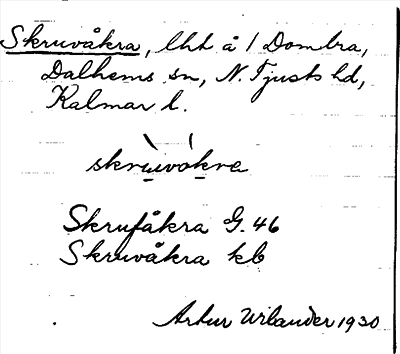 Skruvåkra, lht å 1 Dombra,
Dalhems sn, N. Tjusts hd,
Kalmar l.
skruvokra
Skrufåkra G. 46
Skruvåkra kb
Artur Urlander 1930